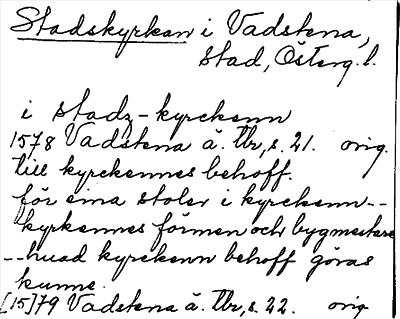 Stadskyrkan i Vadstena,
stad, Österg.l.
i stadz-kyrckenn
1578 Vadstena ä. Tbr, s. 21. orig.
till kyrckennes behoff.
för sina stoler i kyrckenn--
kyrkennes förmen och bygmestare
--huad kyrckenn behoff göras
kunne.
[15]79 Vadstena ä. Tbr, s. 22. orig